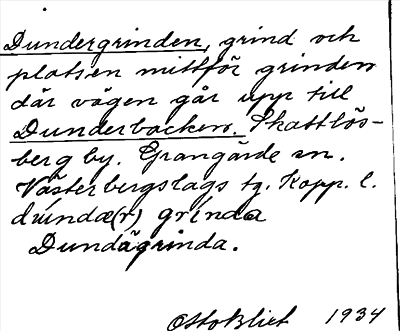 Dundergrinden, grind och
platsen mittför grinden
där vägen går upp till
Dunderbacken. Skattlös-
berg by. Grangärde sn.
Västerbergslags tg. Kopp. l.
dúndæ(r) grínda
Dundägrinda.
Otto Blixt 1934